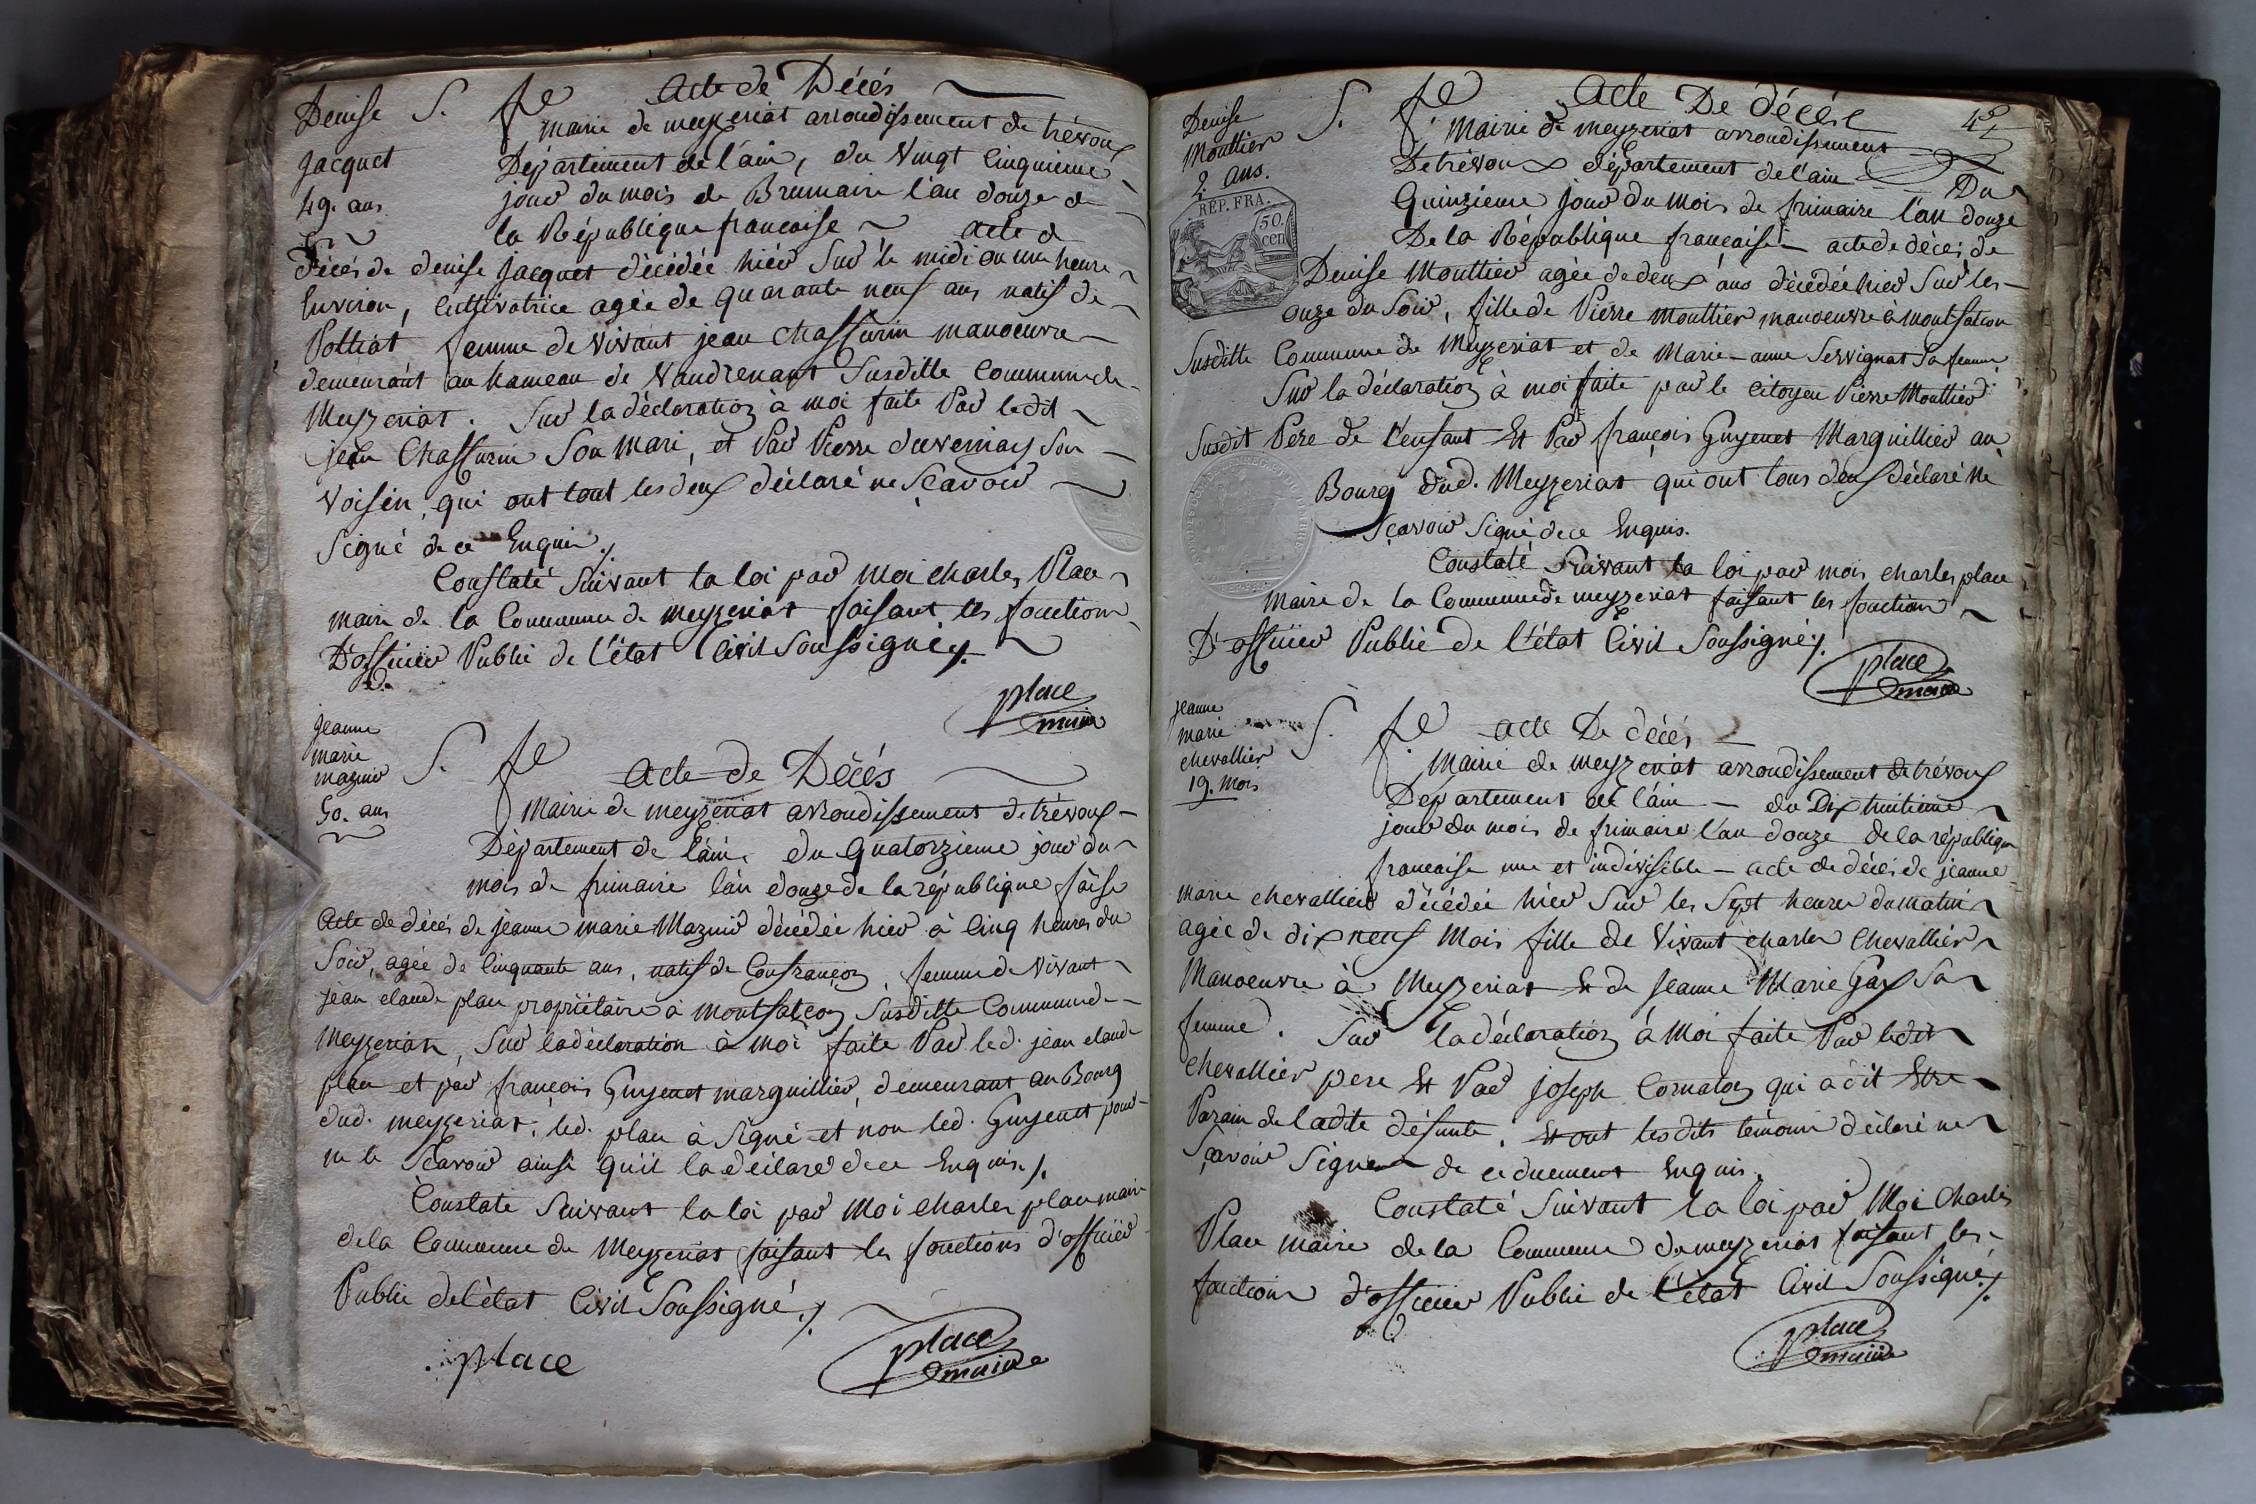 Denise
Jacquet
49. ans
S. fe Acte de Décés
Mairie de meyzeriat arrondissement de trévoux
Département de l'ain, du Vingt Cinquieme
jour du mois de Brumaire l'an douze de
la République francaise acte de
Décés de denise Jacquet décédée hier Sur le midi ou une heure
Environ, Cultivatrice agée de quarante neuf ans natif de
Polliat femme de vivant jean Chassurin manoeuvre
demeurant au hameau de Vaudrenant Susditte Commune de
Meyzeriat. Sur la déclaration à moi faite Par ledit
jean Chassurin Son mari, et Par Pierre duvernay Son
Voisin, qui ont tout les deux déclaré ne Sçavoir
Signé de ce Enquis ./.
Constaté Suivant la loi par Moi charles Place
maire de la Commune de meyzeriat faisant les fonctions
D'officier Public de l'état Civil Soussigné ./.
place
maire
Jeanne
marie
maznir
50. ans
S. fe Acte de Décés
Mairie de meyzeriat arrondissement de trévoux
Département de l'ain, du Quatorzieme jour du
mois de frimaire l'an douze de la république fàise
Acte de décés de jeanne marie Maznir décédée hier à Cinq heures du
Soir, agée de Cinquante ans, natif de Confrançon, femme de Vivant
jean claude place propriétaire à montfalcon Susditte Commune de
Meyzeriat, Sur la déclaration à moi faite Par led. jean claude
place et par françois Guyenet marguillier, demeurant au Bourg
dud. meyzeriat, led. place à Signé et non led. Guyenet pour
ne le Scavoir ainsi qu'il la déclaré de ce Enquis ./.
Constaté Suivant la loi par Moi charles place maire
de la Commune de Meyzeriat faisant les fonctions d'officier
Public de l'état Civil Soussigné ./.
place
place
maire
Denise
Mouttier
2 ans.
REP. FRA.
50.
cen
S. fe Acte De décés
Mairie de meyzeriat arrondissement
De trévoux département de l'ain Du
Quinzieme jour du mois de frimaire l'an douze
De la République française acte de décés de
Denise Mouttier agée de deux ans décédée hier Sur les
onze du Soir, fille de Pierre Mouttier manoeuvre à montfalcon
Susditte Commune de Meyzeriat et de Marie-anne Servignat Sa femme
Sur la déclaration à moi faite par le Citoyen Pierre Mouttier
Susdit Pere de l'enfant Et Par françois Guyenet Marguillier au
Bourg dud. Meyzeriat qui ont tous deux déclaré Ne
Sçavoir Signé de ce Enquis.
Constaté Suivant la loi par moi charles place
Maire de la Commune de meyzeriat faisant les fonction
D'officier Public de l'état Civil Soussigné ./.
place
maire
Jeanne
marie
chevallier
19. Mois
S. fe Acte De décés
Mairie de meyzeriat arrondissement de trévoux
Département de l'ain du Dix huitieme
jour du mois de frimaire l'an douze de la république
francaise une et indivisible acte de décés de jeanne
marie chevallier décédée hier Sur les Sept heures du matin
agée de dix neuf Mois fille de Vivant charles Chevallier
Manoeuvre à Meyzeriat Et de Jeanne Marie Gay Sa
femme. Sur la déclaration à Moi faite Par ledit
Chevallier pere Et Par joseph Cornaton qui a dit Etre
Parain de ladite défunte. Et ont lesdits témoins déclaré ne
Sçavoir Signer de ce duement Enquis.
Constaté Suivant la loi par Moi Charles
Place maire de la Commune de meyzeriat faisant les
fonctions d'officier Public de l'état Civil Soussigné ./.
place
maire